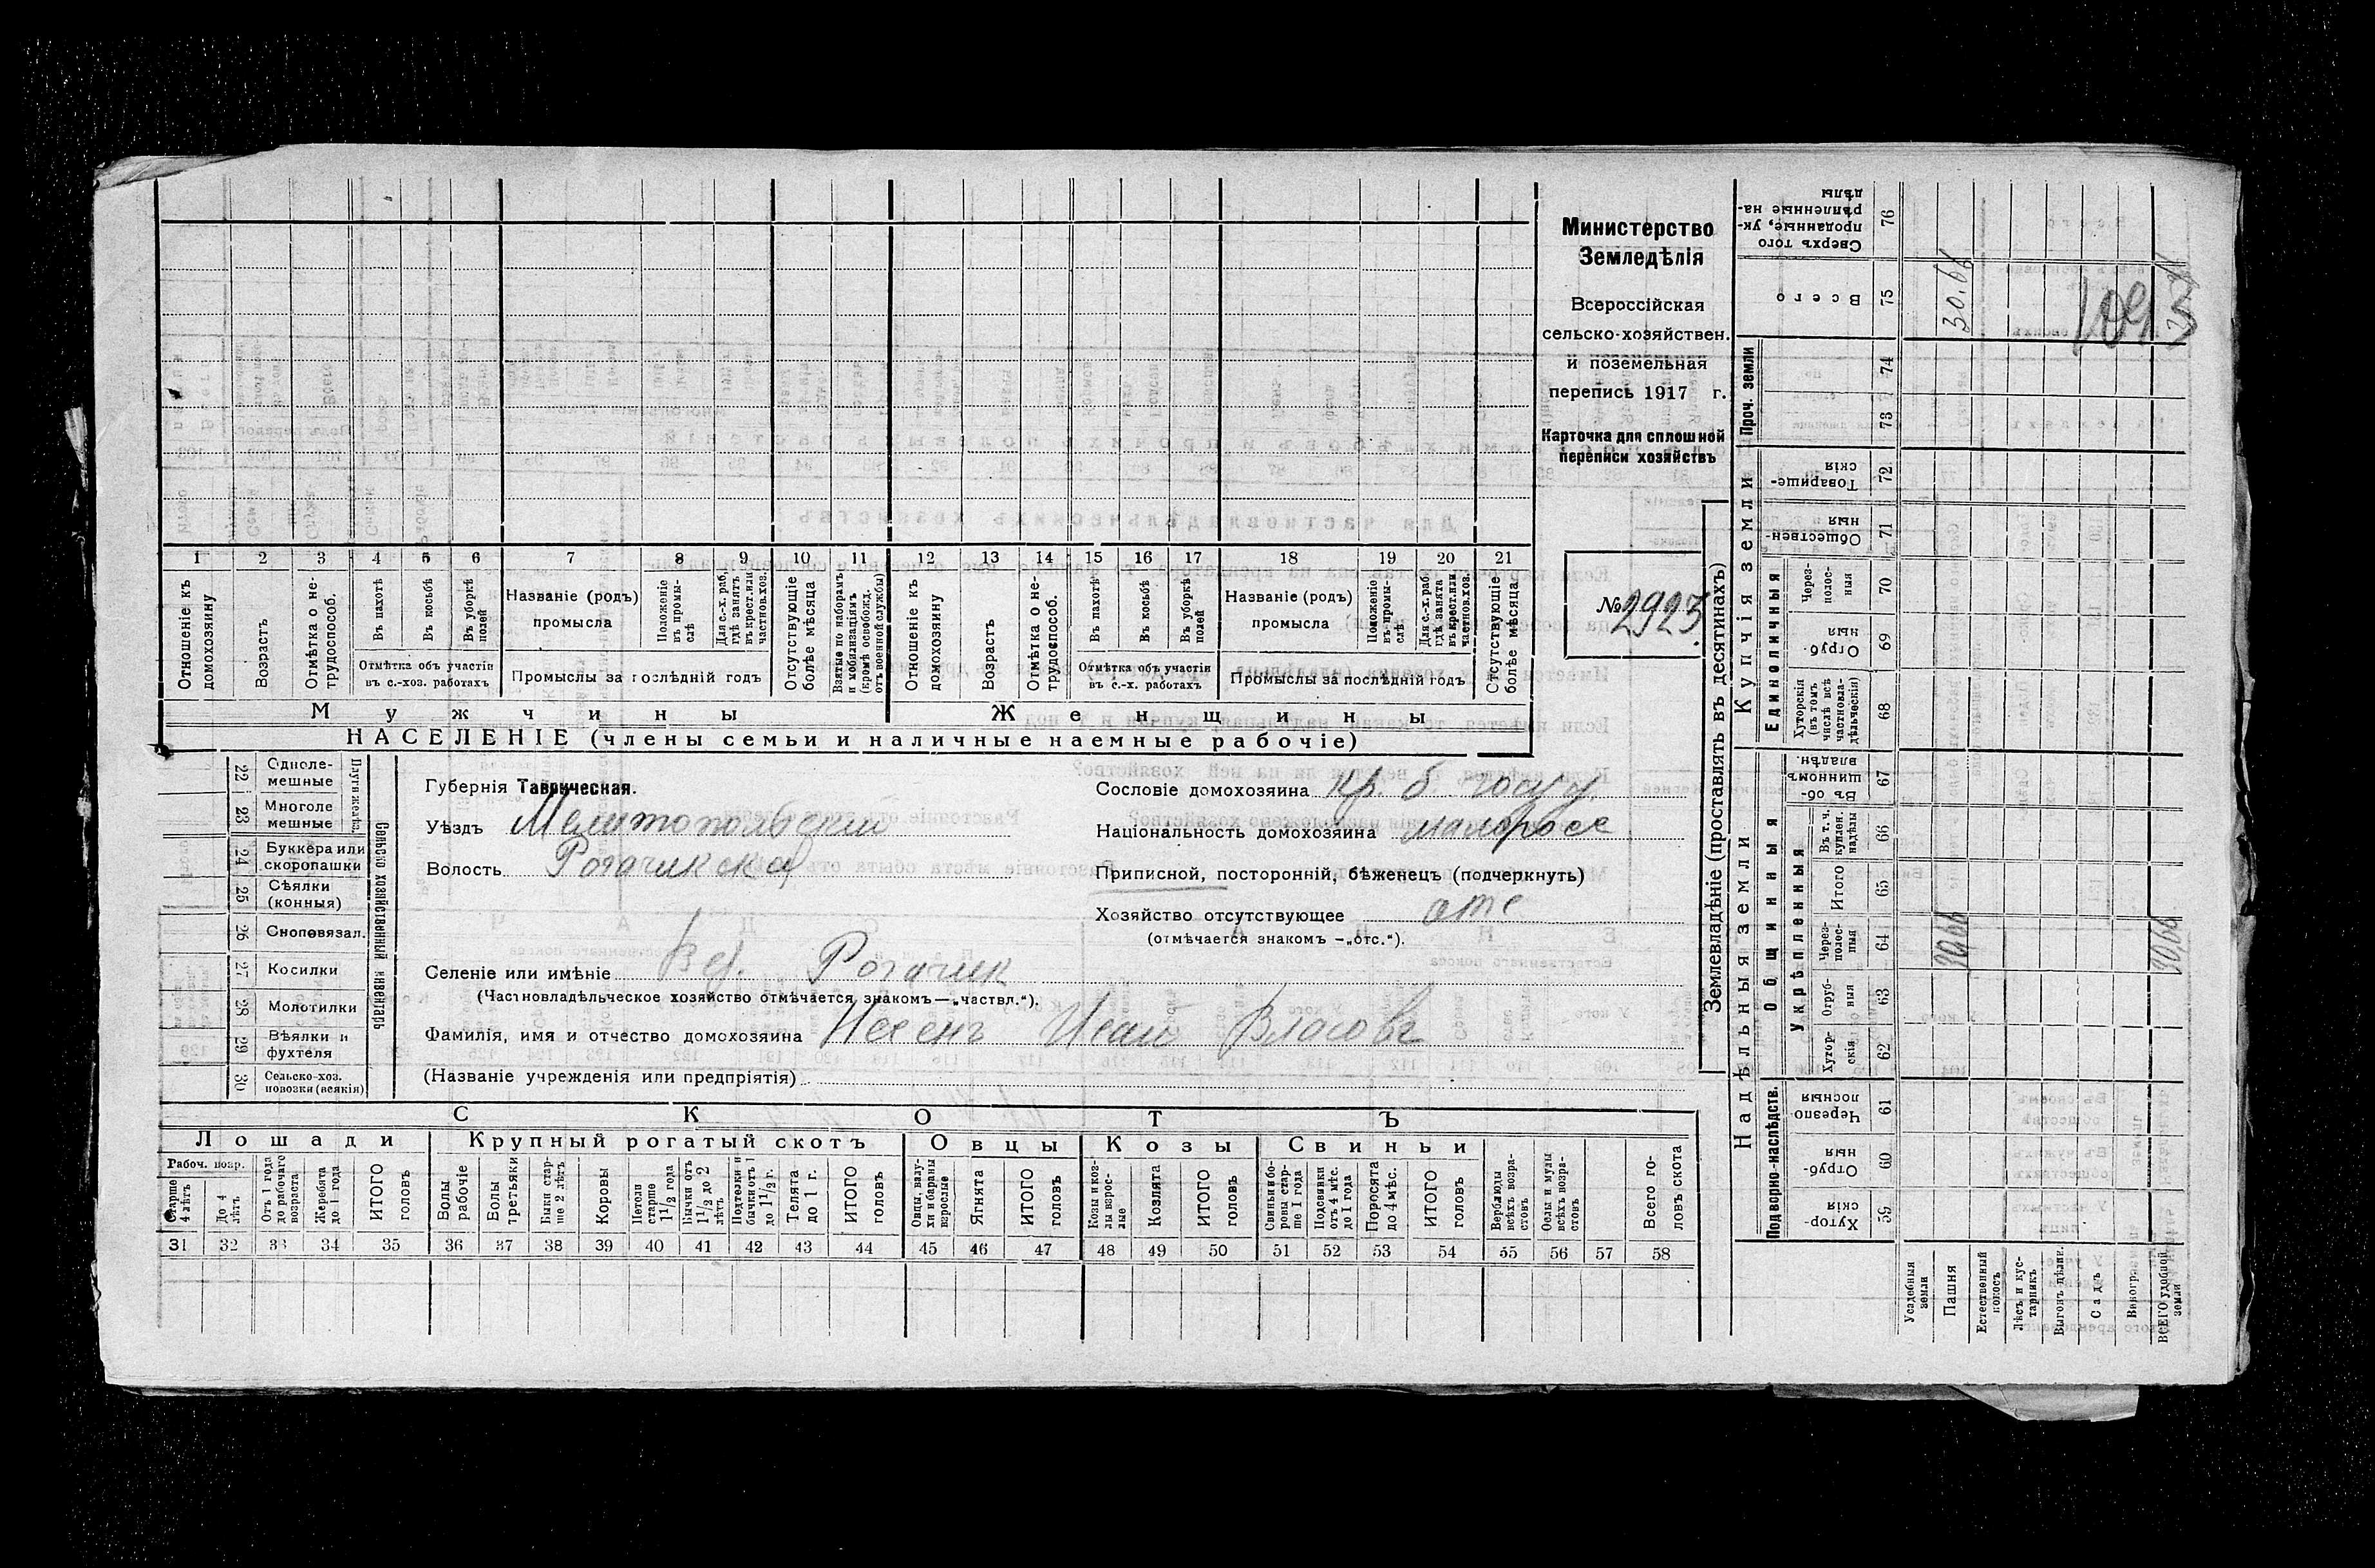 Министерство
Земледѣлія
Всероссійская
сельско-хозяйствен.
и поземельная
перепись 1917 г.
Карточка для сплошной
переписи хозяйствъ
№ 2923
1 2 3 4 5 6 7 8 9 10 11 12 13 14 15 16 17 18 19 20 21
Отношеніе къ домохозяину
Возрастъ
Отмѣтка о нетрудоспособ.
Въ пахотѣ
Въ косьбѣ
Въ уборкѣ полей
Отмѣтка объ участіи въ с.-хоз. работахъ
Названіе (родъ) промысла
Положеніе въ промыслѣ
Для с.-х. раб, гдѣ занятъ въ крест. или частнов. хоз.
Промыслы за послѣдній годъ
Отсутствующіе болѣе мѣсяца
Взятые по наборамъ и мобилизаціямъ (кромѣ освобожд. отъ военной службы)
Отношеніе къ домохозяину
Возрастъ
Отмѣтка о нетрудоспособ.
Въ пахотѣ
Въ косьбѣ
Въ уборкѣ полей
Отмѣтка объ участіи въ с.-х. работахъ
Названіе (родъ) промысла
Положеніе въ промыслѣ
Для с.-х. раб. гдѣ занята въ крест. или частнов. хоз.
Промыслы за послѣдній годъ
Отсутствующіе болѣе мѣсяца
Мужчины Женщины
НАСЕЛЕНІЕ (члены семьи и наличные наемные рабочіе)
Сельско хозяйственный инвентарь
22 Однолемешные
23 Многолемешные
24 Буккера или скоропашки
25 Сѣялки (конныя)
26 Сноповязал.
27 Косилки
28 Молотилки
29 Вѣялки и фухтеля
30 Сельско-хоз. повозки (всякія)
Губернія Таврическая.
Уѣздъ Мелитопольскій
Волость Рогачикская
Селеніе или имѣніе Вер. Рогачик
(Частновладѣльческое хозяйство отмѣчается знакомъ—„частвл.“).
Фамилія, имя и отчество домохозяина Иван Власовъ
(Названіе учрежденія или предпріятія)
Сословіе домохозяина кр. б. госуд.
Національность домохозяина малоросс
Приписной, посторонній, бѣженецъ (подчеркнуть)
Хозяйство отсутствующее отс
(отмѣчается знакомъ —„отс.“).
СКОТЪ
Лошади Крупный рогатый скотъ Овцы Козы Свиньи
Рабоч. возр.
Старше 4 лѣтъ
До 4 лѣтъ
Отъ 1 года до рабочаго возраста
Жеребята до 1 года
ИТОГО головъ
Волы рабочіе
Волы третьяки
Быки старше 2 лѣтъ
Коровы
Нетели старше 1 1/2 года
Бычки отъ 1 1/2 до 2 лѣтъ
Подтелки и бычки отъ 1 до 1 1/2 г.
Телята до 1 г.
ИТОГО головъ
Овцы, валухи и бараны взрослые
Ягнята
ИТОГО головъ
Козы и козлы взрослые
Козлята
ИТОГО головъ
Свиньи и боровы старше 1 года
Подсвинки отъ 4 мѣс. до 1 года
Поросята до 4 мѣс.
ИТОГО головъ
Верблюды всѣхъ возрастовъ
Ослы и мулы всѣхъ возрастовъ
Всего головъ скота
31 32 33 34 35 36 37 38 39 40 41 42 43 44 45 46 47 48 49 50 51 52 53 54 55 56 57 58
Землевладѣніе (проставлять въ десятинахъ)
Надѣльныя земли
Купчія земли
Проч. земли
Подворно-наслѣдств.
Общинныя
Укрѣпленныя
Единоличныя
Хуторскія 59
Отрубныя 60
Черезполосныя 61
Хуторскія 62
Отрубныя 63
Черезполосныя 64
Итого 65
Въ т. ч. куплен. надѣлы 66
Въ общинномъ владѣн. 67
Хуторскія (въ томъ числѣ всѣ частновладѣльческія) 68
Отрубныя 69
Черезполосныя 70
Общественныя 71
Товарищескія 72
73
74
Всего 75
Сверхъ того проданные, укрѣпленные надѣлы 76
Усадебныя земли
Пашня
Естественный покосъ
Лѣсъ и кустарникъ
Выгонъ цѣлин.
Садъ
Виноград
ВСЕГО удобной земли
30.66
30.66
30.66